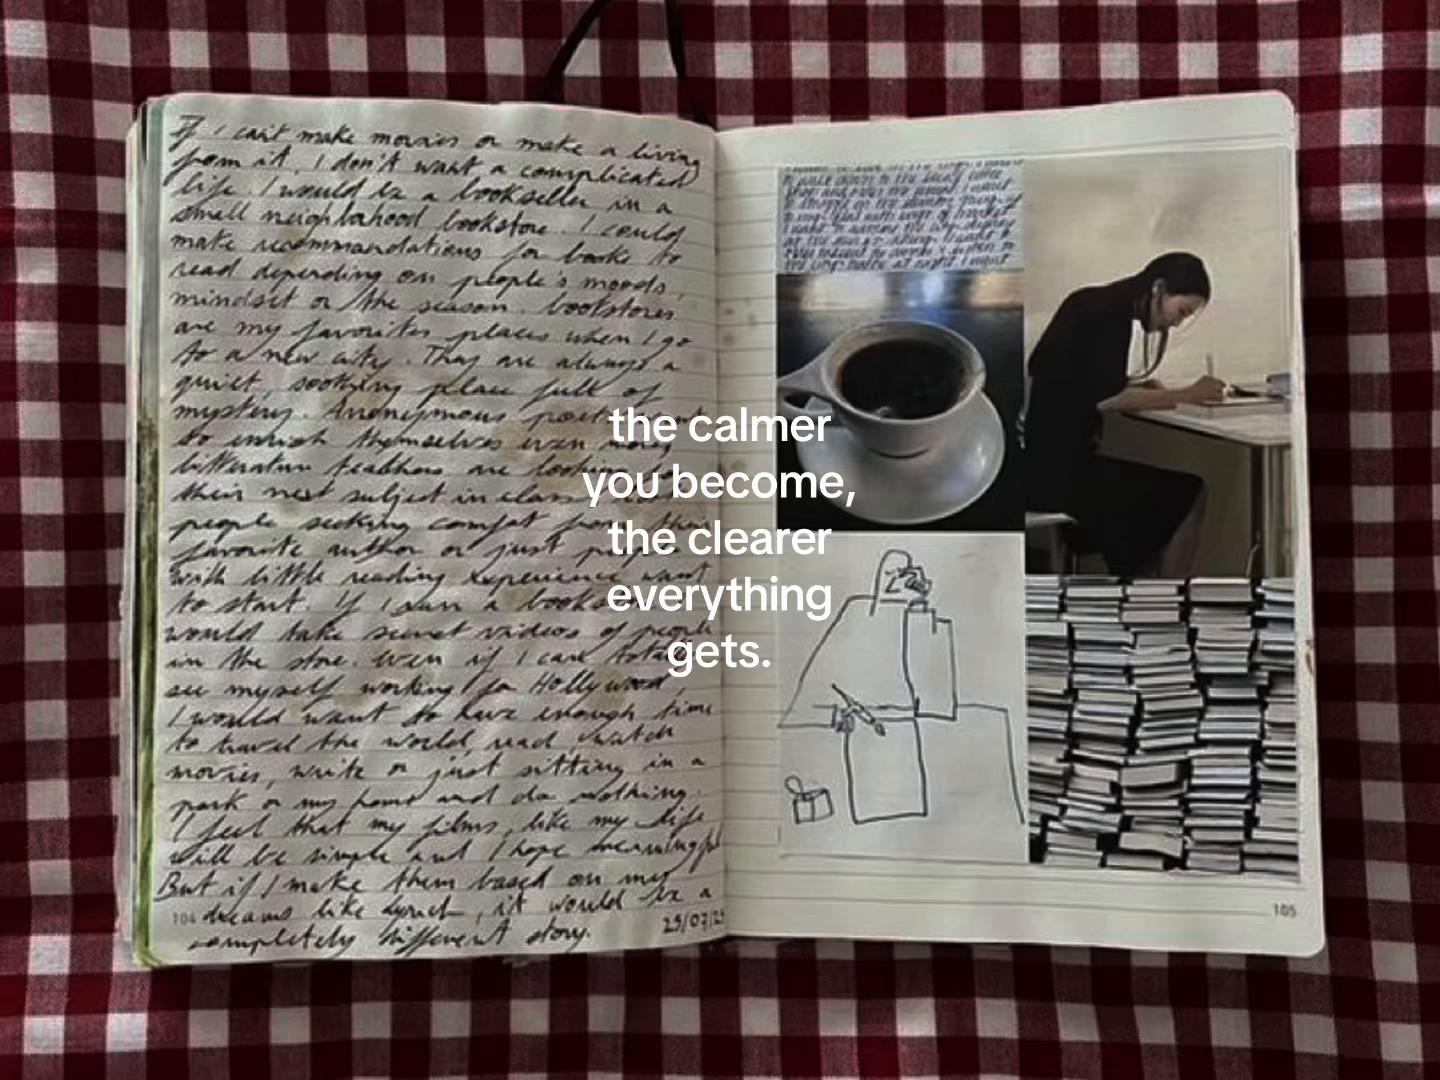 If I can't make movies or make a living
from it, I don't want a complicated
life. I would be a bookseller in a
small neighborhood bookstore. I could
make recommandations for books to
read depending on people's moods,
mindset or the season. bookstores
are my favorites places when I go
to a new city. They are always a
quiet, soothing place full of
mystery. Anonymous poets want
to enrich themselves even more,
litterature teachers are looking for
their next subject in class
people seeking comfort from their
favorite author or just people
with little reading experience want
to start. If I own a bookstore
would take secret videos of people
in the store. Even if I can totally
see myself working for Hollywood,
I would want to have enough time
to travel the world, read, watch
movies, write or just sitting in a
park or my home and do nothing.
I feel that my films, like my life
will be simple and I hope meaningful
But if I make them based on my
104 dreams like Lynch, it would be a
completely different story.
the calmer
you become,
the clearer
everything
gets.
105